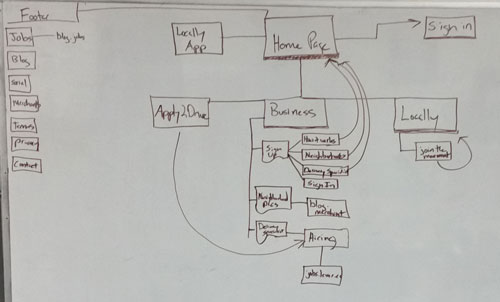 Footer
Jobs
blog.jobs
Blog
Social
Merchants
Terms
Privacy
Contact
Locally
App
Home Page
Sign in
Apply2Drive
Business
Locally
Sign
Up
How it works
Neighborhoods
Delivery Specialist
Sign In
join the
movement
Neighborhood
pics
blog.
merchant
Delivery
specialist
Hiring